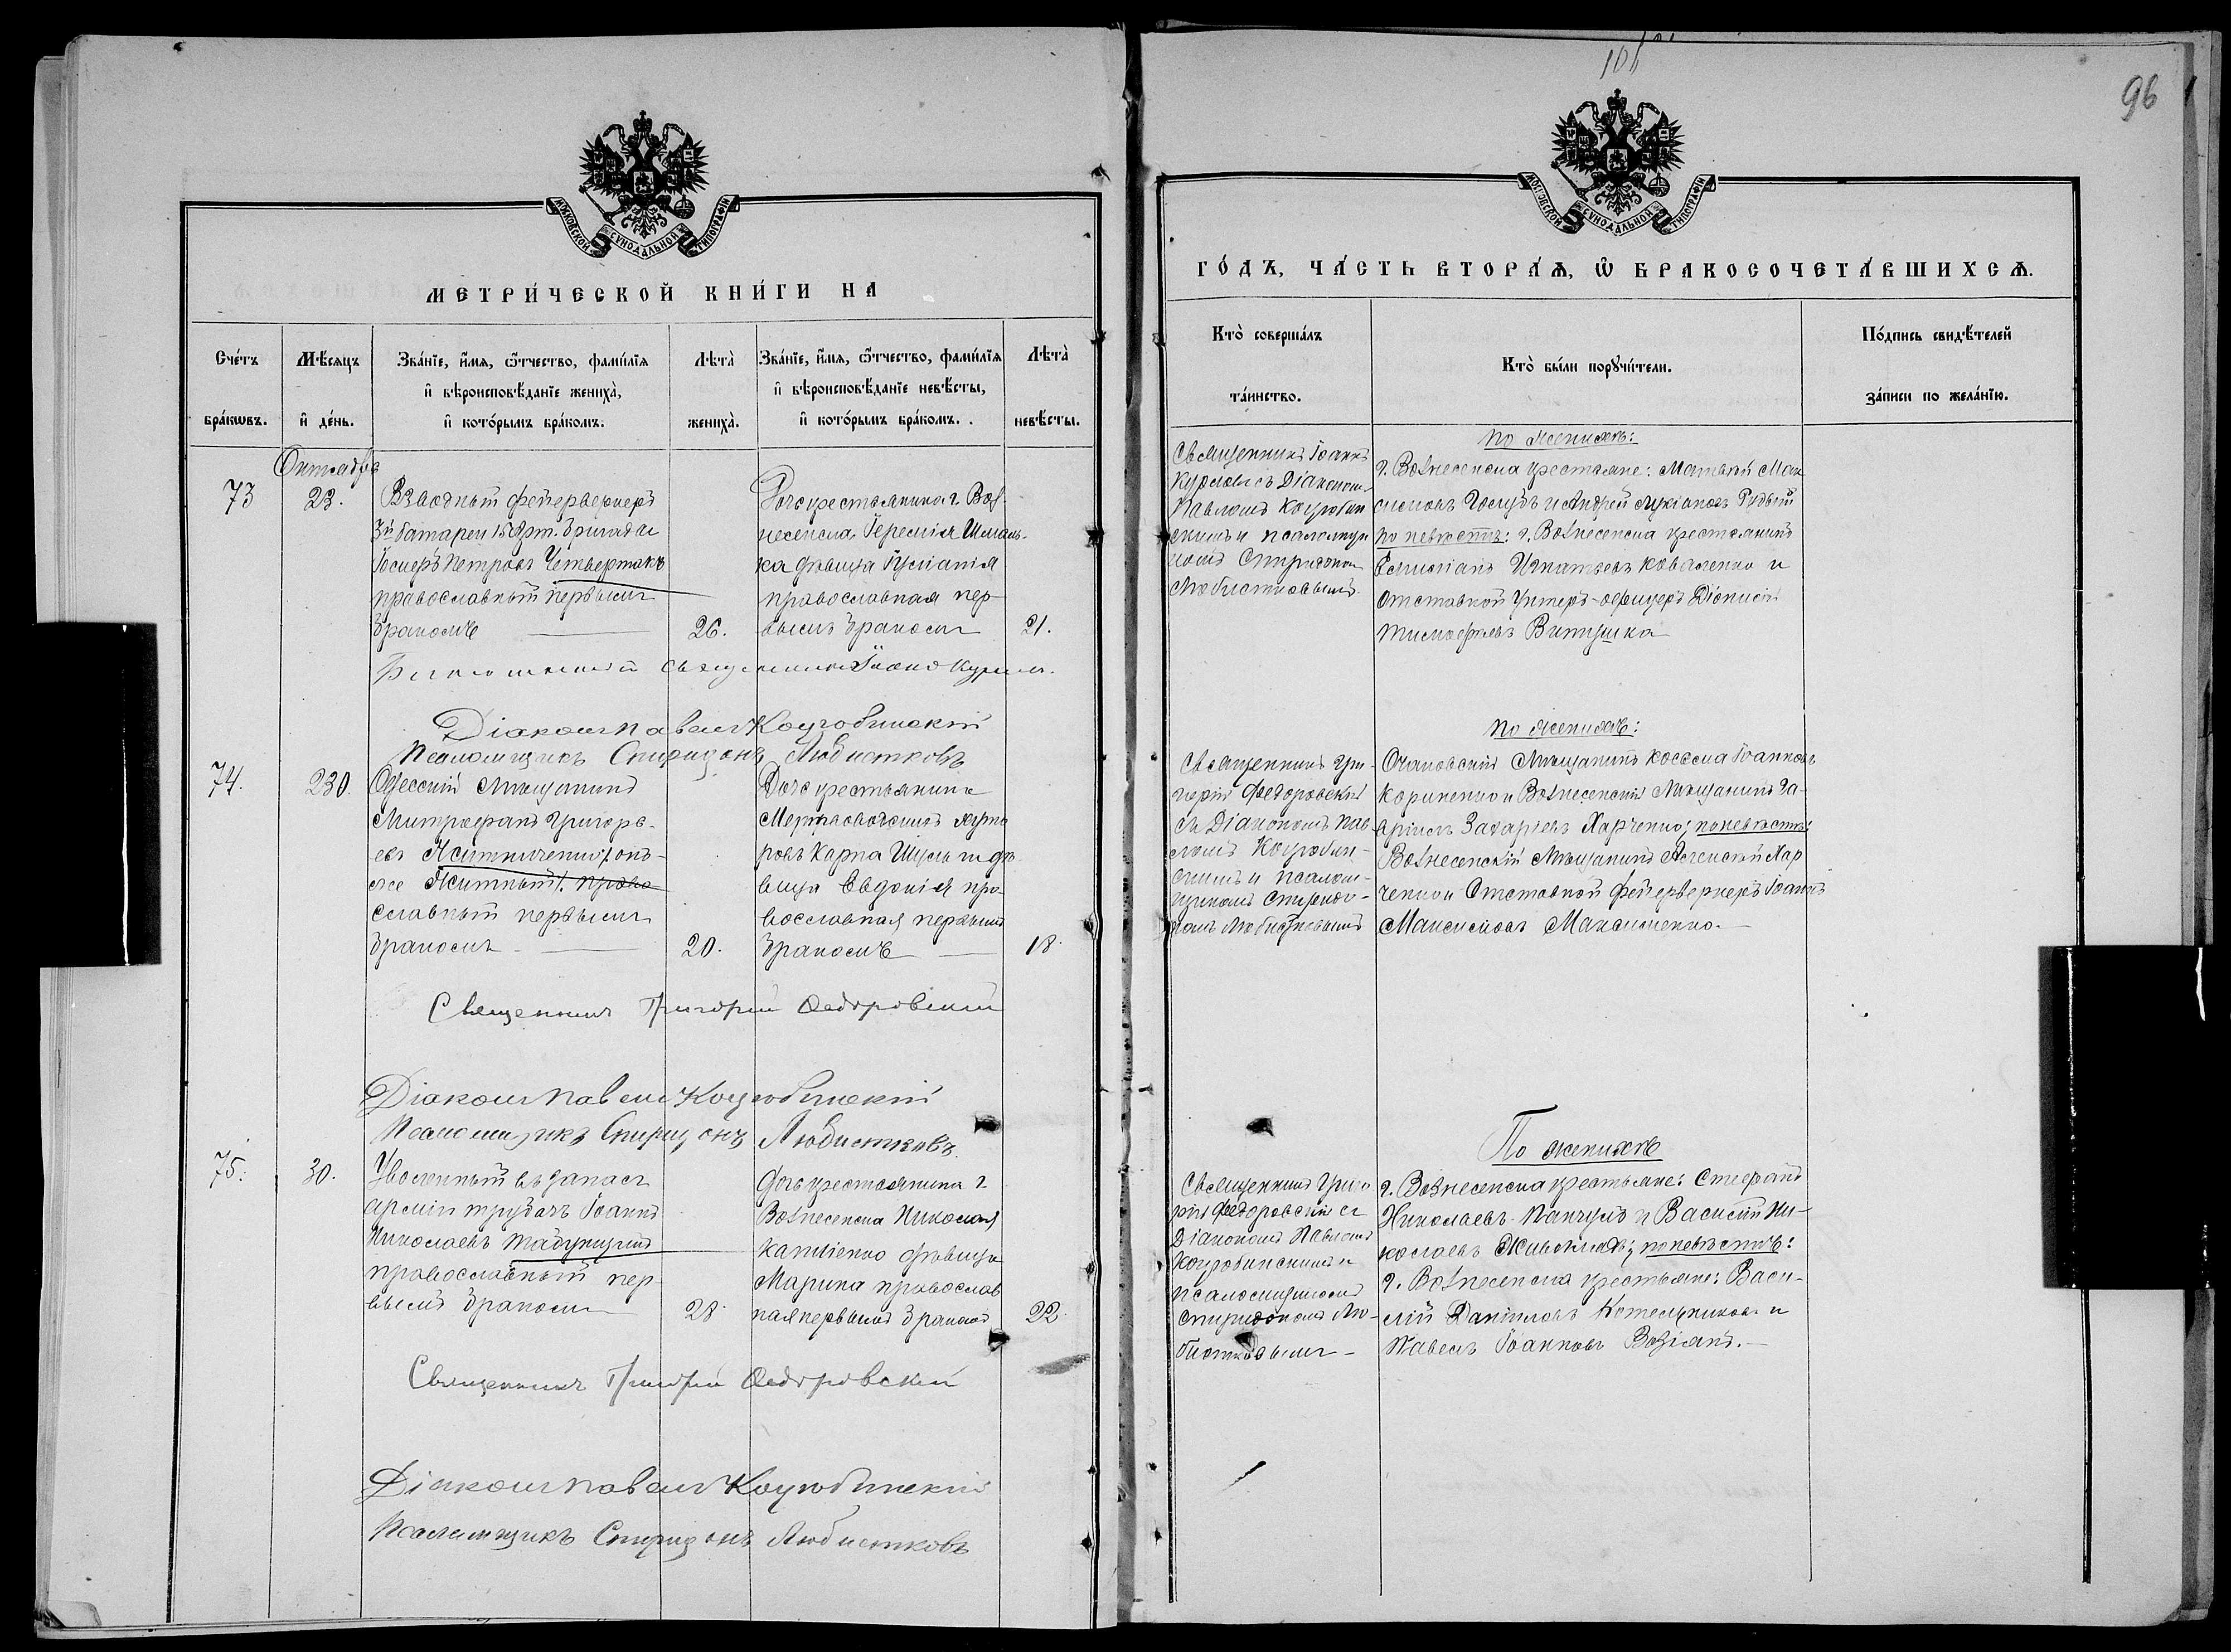 МОСКОВСКОЙ СѴНОДАЛЬНОЙ ТИПОГРАФІИ
МЕТРИ́ЧЕСКОЙ КНИ́ГИ НА
Сче́тъ бра́кѡвъ.
Мѣ́сяцъ и҆ де́нь.
Зва́нїе, и҆́мя, ѻ҆́тчество, фами́лїя и҆ вѣроисповѣ́данїе жениха̀, и҆ кото́рымъ бра́комъ.
Лѣта̀ жениха̀.
Зва́нїе, и҆́мя, ѻ҆́тчество, фами́лїя и҆ вѣроисповѣ́данїе невѣ́сты, и҆ кото́рымъ бра́комъ.
Лѣта̀ невѣ́сты.
Октября
73
23.
Взводный фейерверкеръ
3й батареи 15 Арт. бригады
Петровъ Четвертакъ
православный первымъ
бракомъ
26.
Дочь крестьянина г. Воз-
несенска Іереміи Шмаль-
ка девица
православная пер-
вымъ бракомъ
21.
священникъ Іоаннъ
Діаконъ Павелъ Коцюбинскій
Псаломщикъ Спиридонъ Любистковъ
74.
230.
Одесскій мѣщанинъ
Митрофанъ Григорь-
евъ Житниченко, онъ-
же Житный, право
славный первымъ
бракомъ
20.
Дочь крестьянина
Карпа дѣ-
вица Евдокія пра-
вославная первымъ
бракомъ
18.
Священникъ Григорій Федоровскій
Діаконъ Павелъ Коцюбинскій
Псаломщикъ Спиридонъ Любистковъ
75.
30.
Уволенный въ запасъ
арміи трубачъ Іоаннъ
Николаевъ
православный пер-
вымъ бракомъ
28.
Дочь крестьянина г.
Вознесенска Николая
девица
Марина православ
ная первымъ бракомъ
22.
Священникъ Григорій Федоровскій
Діаконъ Павелъ Коцюбинскій
Псаломщикъ Спиридонъ Любистковъ
96
МОСКОВСКОЙ СѴНОДАЛЬНОЙ ТИПОГРАФІИ
ГО́ДЪ, ЧА́СТЬ ВТОРА́Я, Ѡ҆ БРАКОСОЧЕТА́ВШИХСЯ.
Кто̀ соверша́лъ та́инство.
Кто̀ бы́ли порꙋчи́тели.
По́дпись свидѣ́телей за́писи по жела́нїю.
Священникъ Іоаннъ
съ Діакономъ
Павломъ Коцюбин
скимъ и псаломщи
комъ Спиридономъ
Любистковымъ.
По женихѣ:
г. Вознесенска крестьяне: Матвѣй Мак
симовъ и Андрей Рудый
по невѣстѣ: г. Вознесенска крестьянинъ
Емиліанъ Игнатьевъ Коваленко и
Отставной Унтеръ-офицеръ Діонисій
Тимофѣевъ Витушка
Священникъ Гри-
горій Федоровскій
съ Діакономъ Пав
ломъ Коцюбин-
скимъ и псалом-
щикомъ Спиридо-
номъ Любистковымъ
По женихѣ:
Очаковскій Мѣщанинъ Іоанновъ
и Вознесенскій Мѣщанинъ Га-
вріилъ Захаріевъ Харченко; по невѣстѣ:
Вознесенскій Мѣщанинъ Хар
ченко и Отставной фейерверкеръ Іоаннъ
Максимовъ Максименко.
Священникъ Григо
рій Федоровскій съ
Діакономъ Павломъ
Коцюбинскимъ и
псаломщикомъ
Спиридономъ Лю-
бистковымъ
По женихѣ
г. Вознесенска крестьяне: Стефанъ
Николаевъ и Василій Ни-
колаевъ по невѣстѣ:
г. Вознесенска крестьяне: Васи-
лій Даніиловъ Котельниковъ и
Павелъ Іоанновъ Возіянъ.